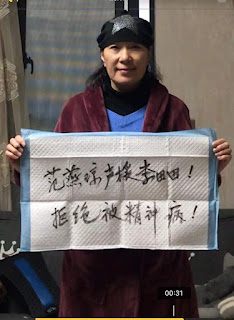 范燕琼声援李田田!
拒绝被精神病!
00:31